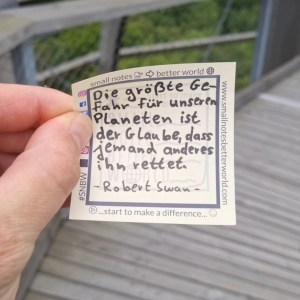 small notes ➩ better world
Die größte Ge-
fahr für unseren
Planeten ist
der Glaube, dass
jemand anderes
ihn rettet
- Robert Swan -
...start to make a difference...
www.smallnotesbetterworld.com
#SNBW